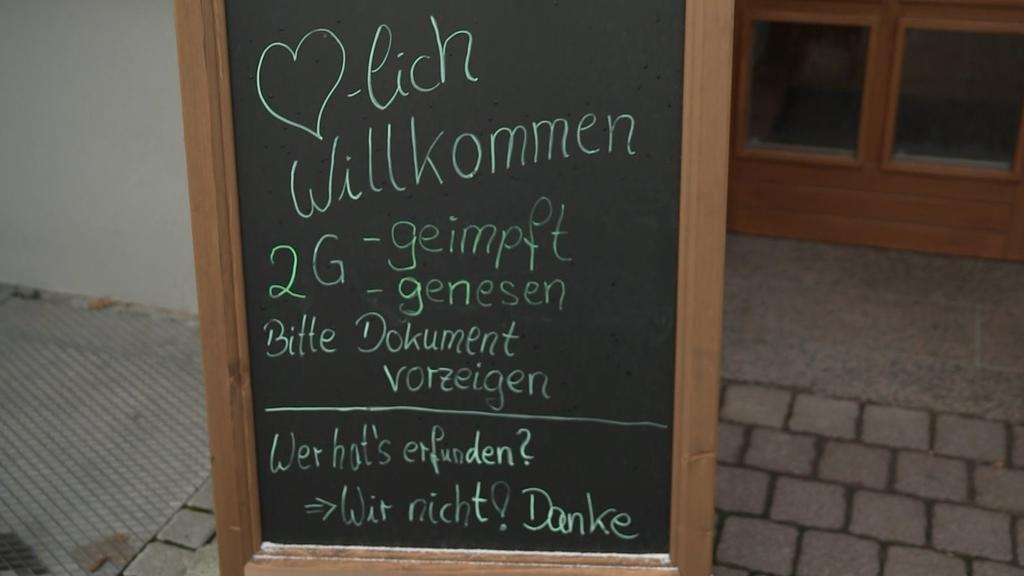 ♡-lich
Willkommen
2G - geimpft
- genesen
Bitte Dokument
vorzeigen
Wer hat's erfunden?
⇒ Wir nicht! Danke